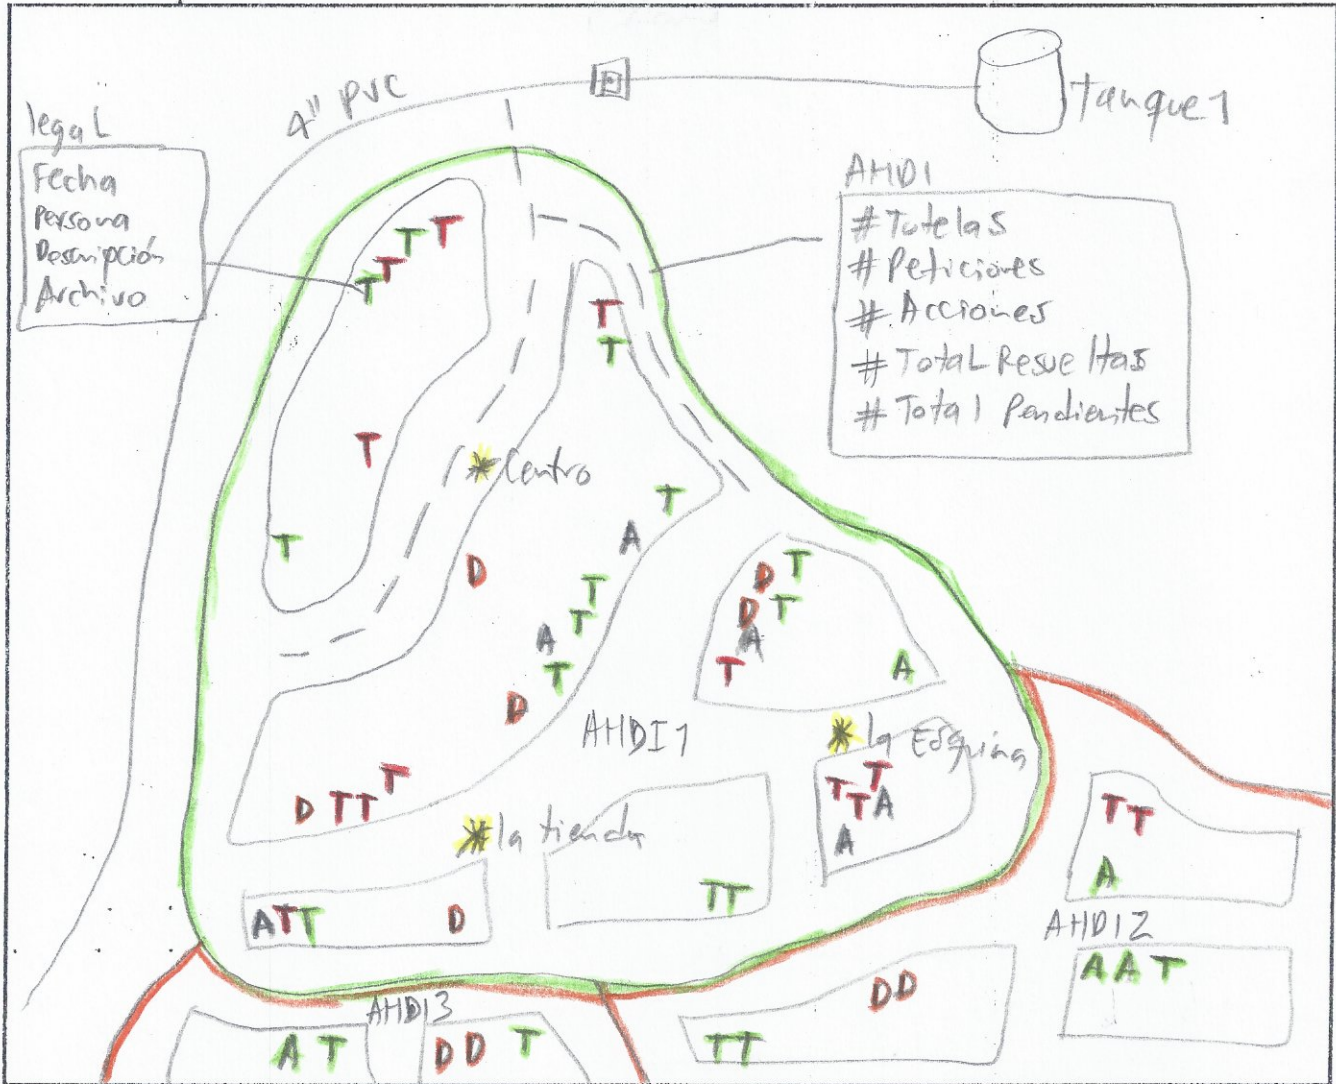 4" PVC
Tanque 1
legal
Fecha
Persona
Descripción
Archivo
AHDI
# Tutelas
# Peticiones
# Acciones
# Total Resueltas
# Total Pendientes
T T
T T
T
T
T
T
Centro
T
A
D
T
T
A
T
D
D T T T
D T
D T
A
T
A
AHDI1
la Esquina
T T
T A
A
la tienda
T T
A T T D
T T
A
AHDI2
A A T
AHDI3
A T
D D T
D D
T T